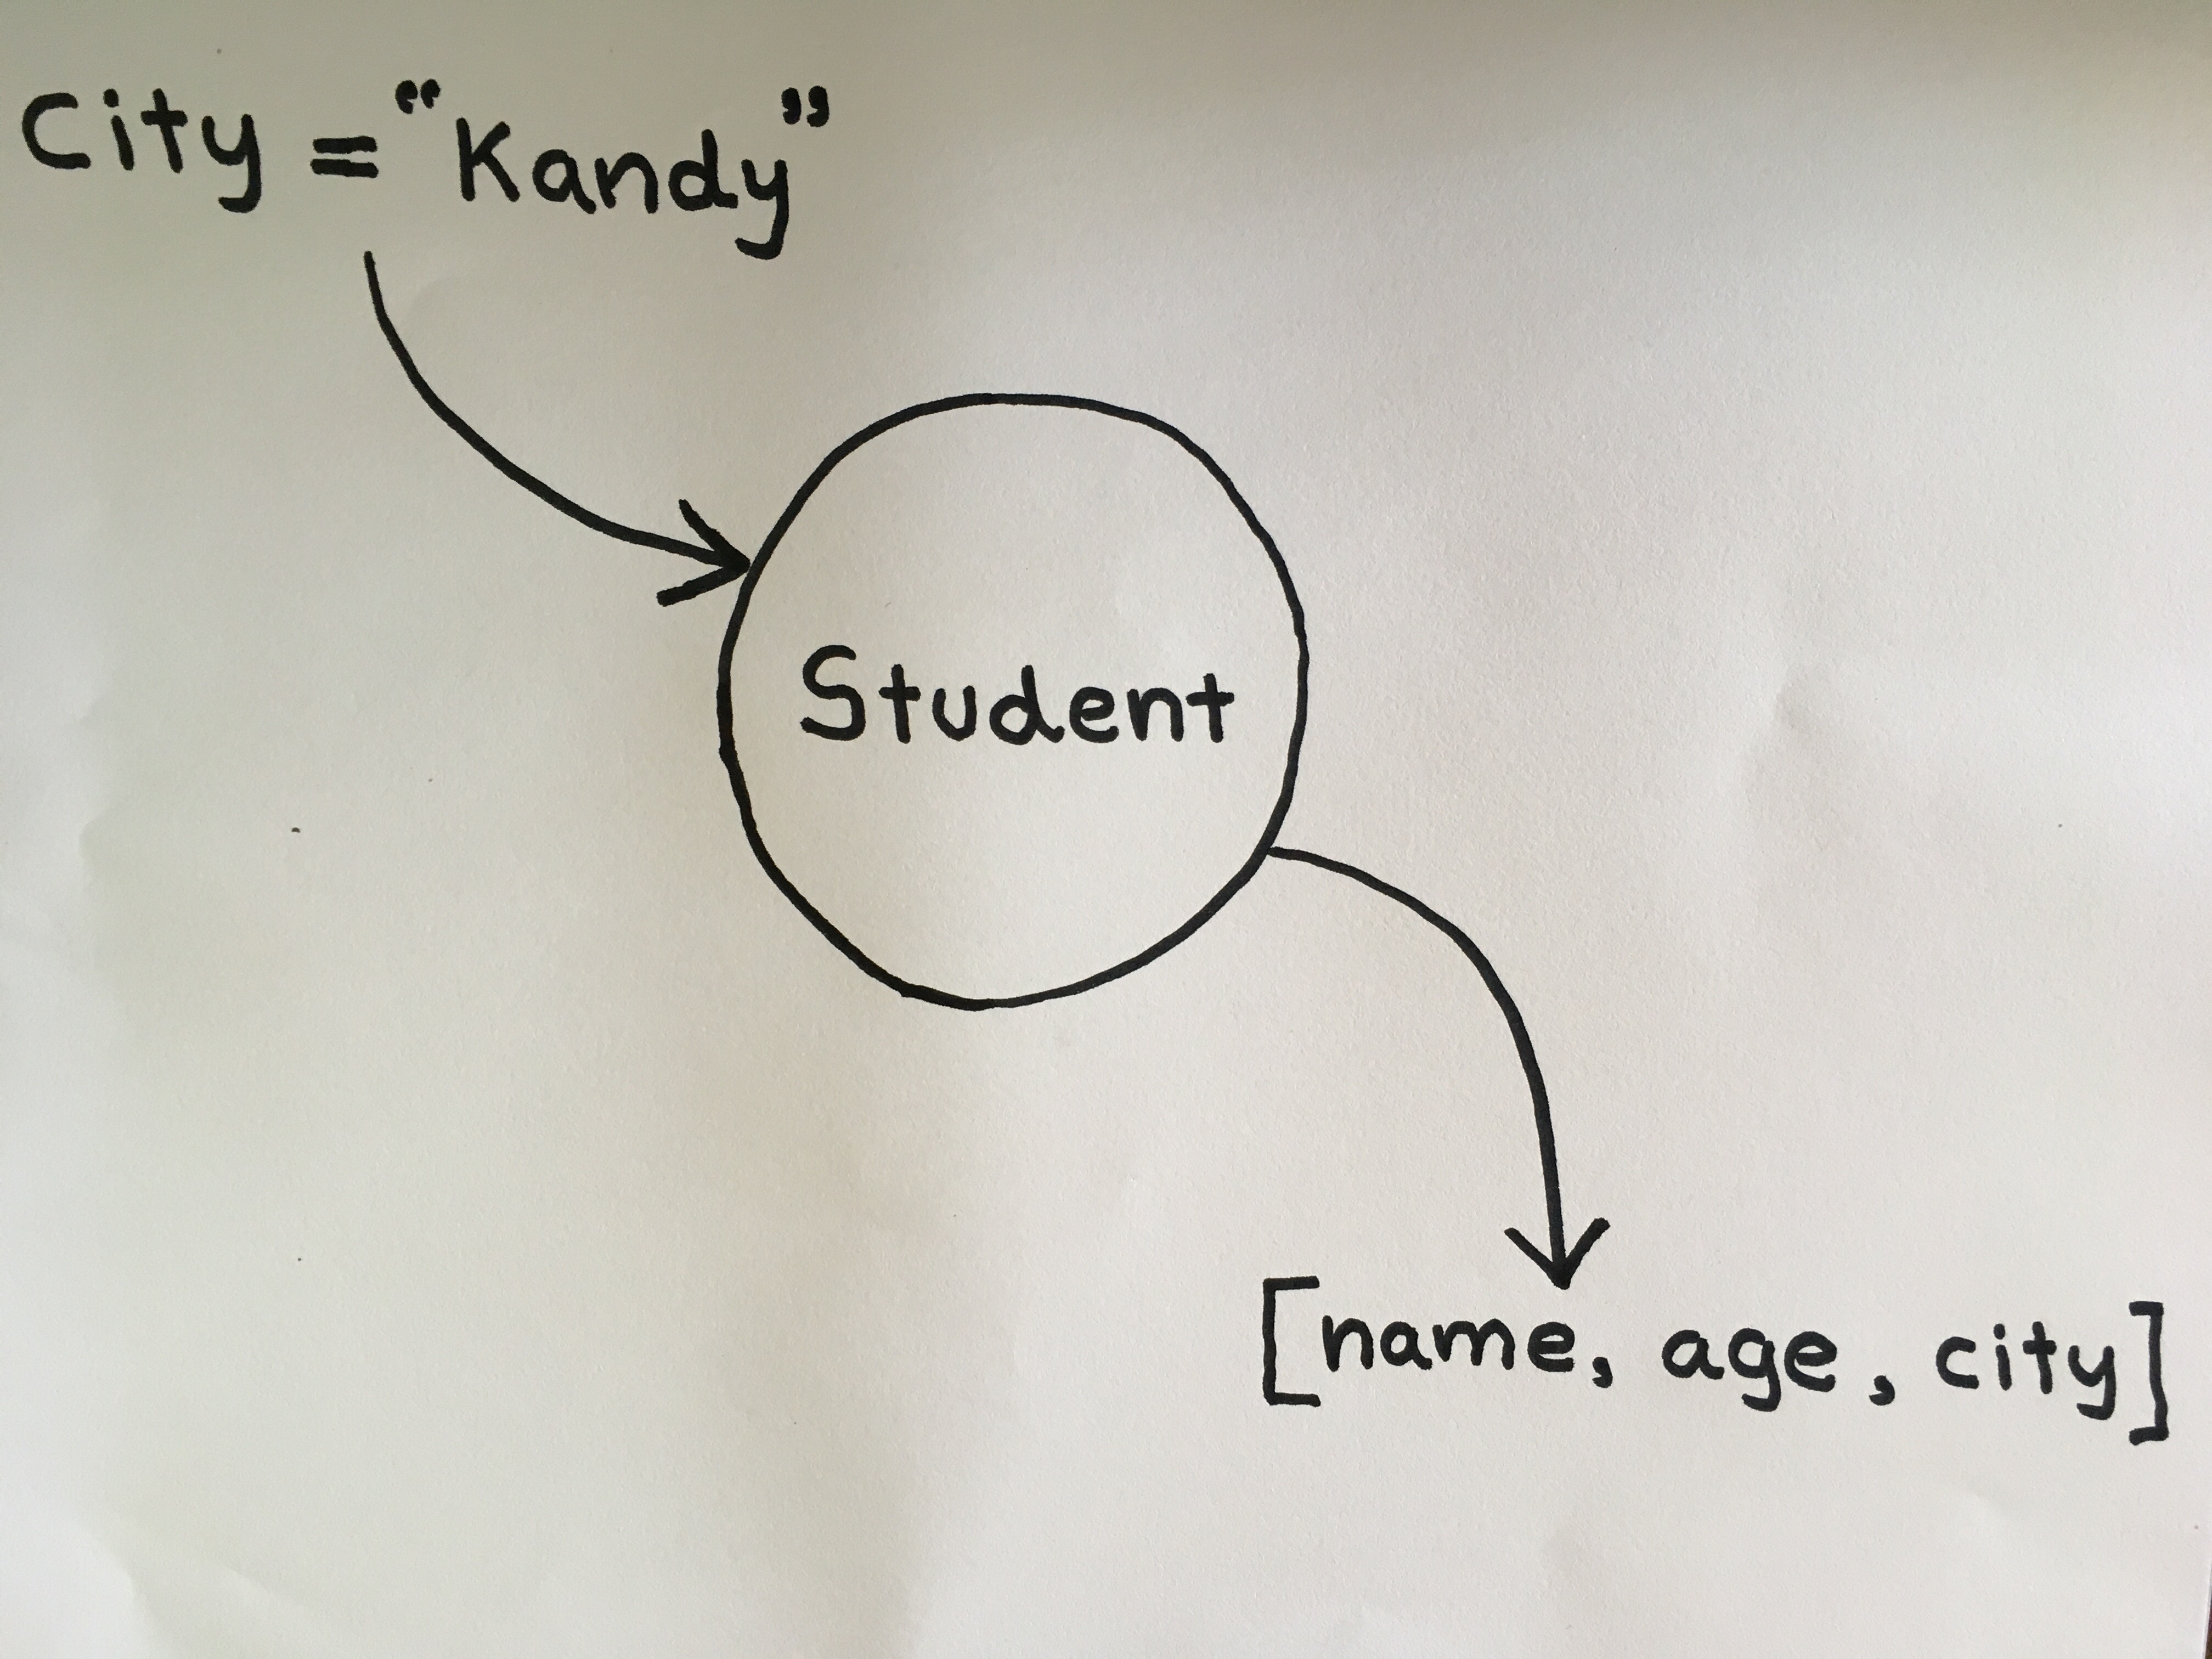 City = “Kandy”
Student
[name, age, city]